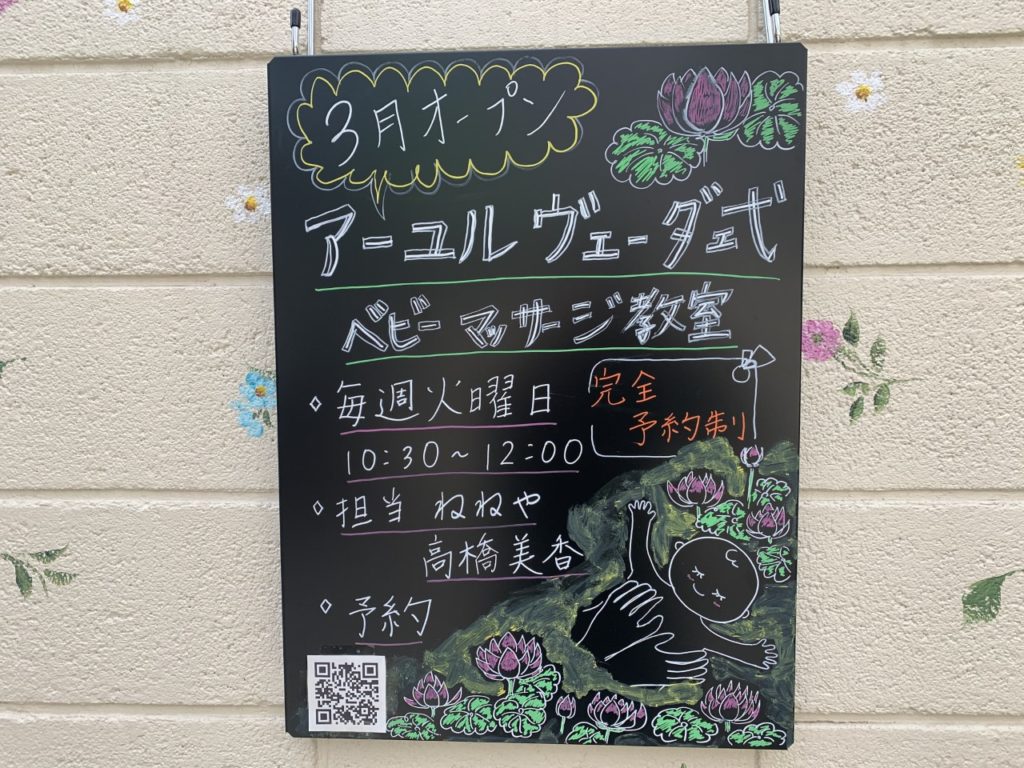 3月オープン
アーユルヴェーダ式
ベビーマッサージ教室
完全
予約制
◇毎週火曜日
10:30~12:00
◇担当 ねねや
高橋美香
◇予約